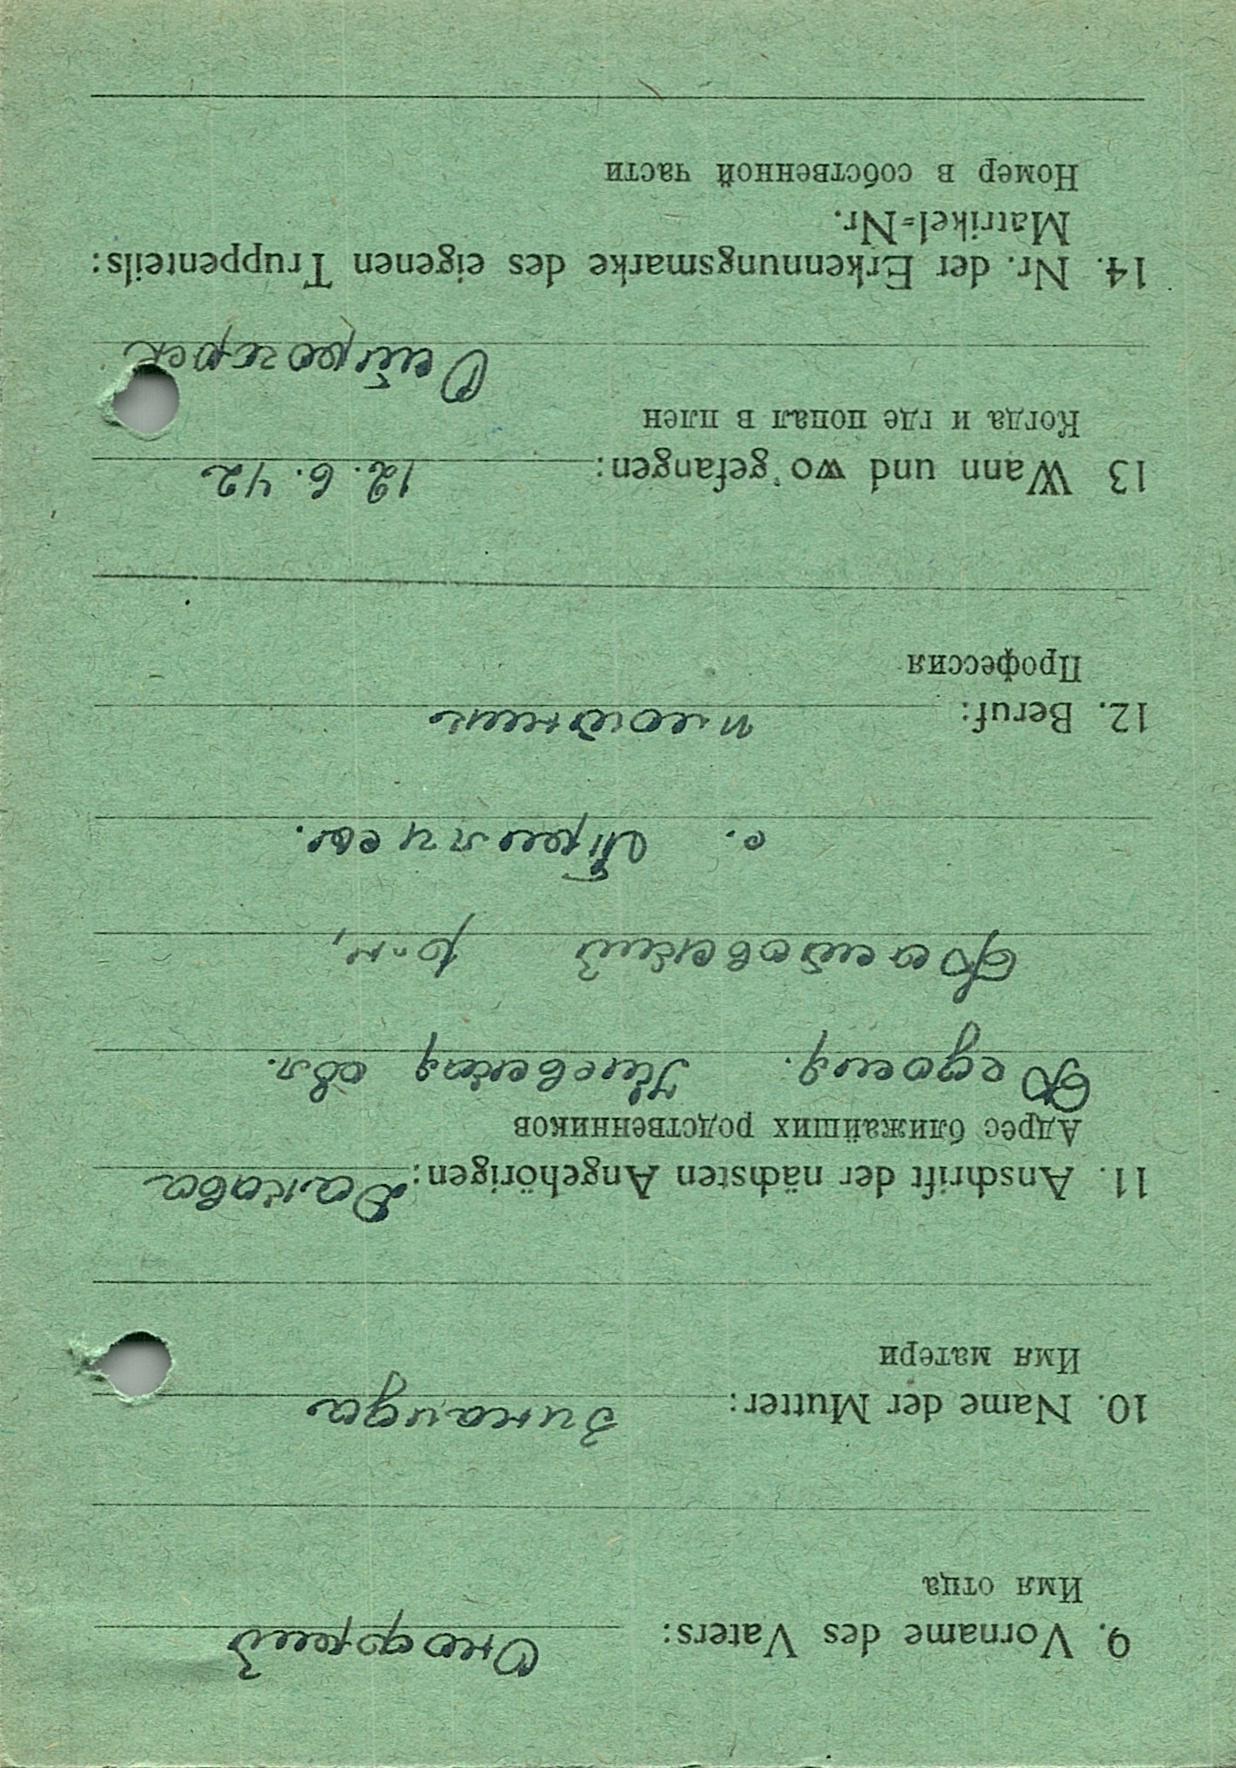 9. Vorname des Vaters: Онофрий
Имя отца
10. Name der Mutter: Зинаида
Имя матери
11. Anschrift der nächsten Angehörigen:
Адрес ближайших родственников
Киевская обл.
Фастовский р-н,
с.
12. Beruf: плотник
Профессия
13 Wann und wo gefangen: 12.6.42
Когда и где попал в плен
14. Nr. der Erkennungsmarke des eigenen Truppenteils:
Matrikel-Nr.
Номер в собственной части